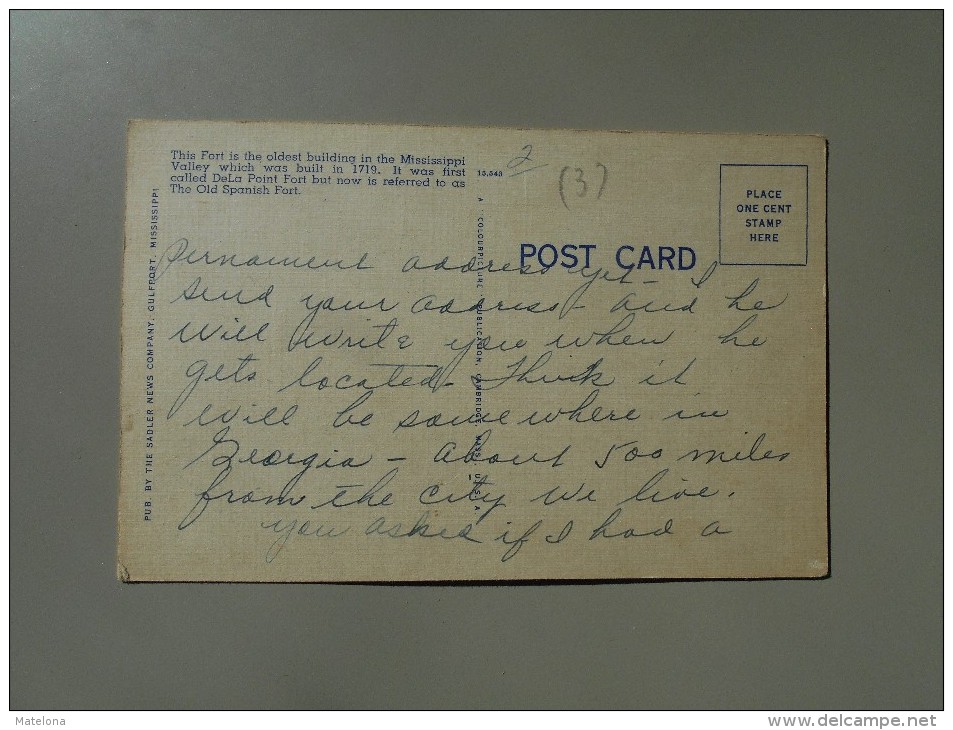 This Fort is the oldest building in the Mississippi
Valley which was built in 1719. It was first
called DeLa Point Fort but now is referred to as
The Old Spanish Fort.
15,548
2
(3)
PLACE
ONE CENT
STAMP
HERE
POST CARD
PUB. BY THE SADLER NEWS COMPANY, GULFPORT, MISSISSIPPI
A COLOURPICTURE PUBLICATION, CAMBRIDGE, MASS., U.S.A.
Pernament address yet - I
send your address - and he
will write you when he
gets located - Think it
will be somewhere in
Georgia - about 500 miles
from the city we live.
you asked if I had a
Matelona
www.delcampe.net